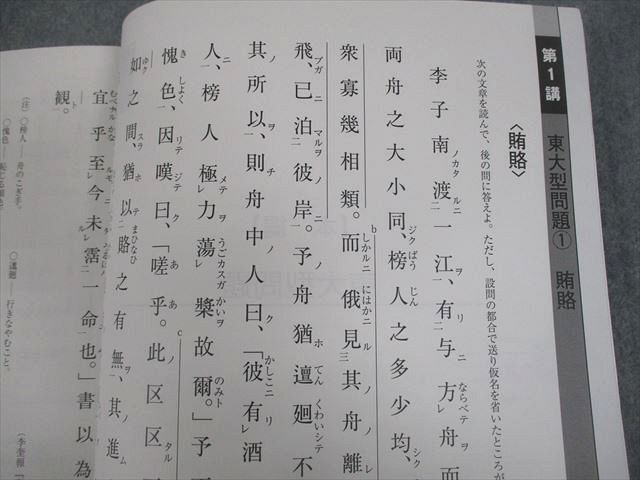 第1講
東大型問題① 賄賂
〈賄賂〉
次の文章を読んで、後の問に答えよ。ただし、設問の都合で送り仮名を省いたところが
李子南渡一江、有与方舟而
両舟之大小同、榜人之多少均、
衆寡幾相類。而俄見其舟離
飛、已泊彼岸。予舟猶邅廻不
其所以、則舟中人曰、「彼有酒
人、榜人極力蕩槳故爾。」予
愧色、因嘆曰、「嗟乎。此区区
如之間、猶以賂之有無、其進
宜乎至今未霑一命也。」書以為
観。
(注) ○榜人――舟のこぎ手。
○邅廻――行きなやむこと。
(李奎報